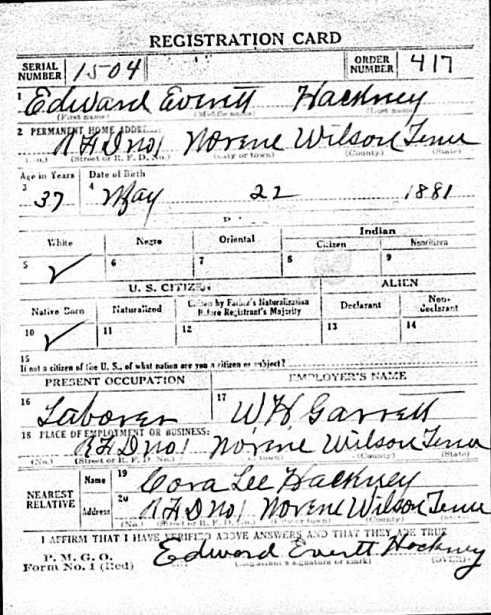 REGISTRATION CARD
SERIAL NUMBER 1504 ORDER NUMBER 417
1 Edward Everett Hackney
(First name) (Middle name) (Last name)
2 PERMANENT HOME ADDRESS:
R F D no 1 Norene Wilson Tenn
(No.) (Street or R. F. D. No.) (City or town) (County) (State)
Age in Years Date of Birth
3 37 4 May 22 1881
Indian
White Negro Oriental Citizen Noncitizen
5 ✓ 6 7 8 9
U. S. CITIZEN ALIEN
Native Born Naturalized Citizen by Father's Naturalization Before Registrant's Majority Declarant Non-declarant
10 ✓ 11 12 13 14
15
If not a citizen of the U. S., of what nation are you a citizen or subject?
PRESENT OCCUPATION EMPLOYER'S NAME
16 Laborer 17 W H Garrett
18 PLACE OF EMPLOYMENT OR BUSINESS:
R F D no 1 Norene Wilson Tenn
(No.) (Street or R. F. D. No.) (County) (State)
NEAREST RELATIVE Name 19 Cora Lee Hackney
Address 20 R F D no 1 Norene Wilson Tenn
(No.) (Street or R. F. D. No.) (City or town) (County) (State)
I AFFIRM THAT I HAVE VERIFIED ABOVE ANSWERS AND THAT THEY ARE TRUE
P. M. G. O.
Form No. 1 (Red) Edward Everett Hackney
(Registrant's signature or mark) (OVER)